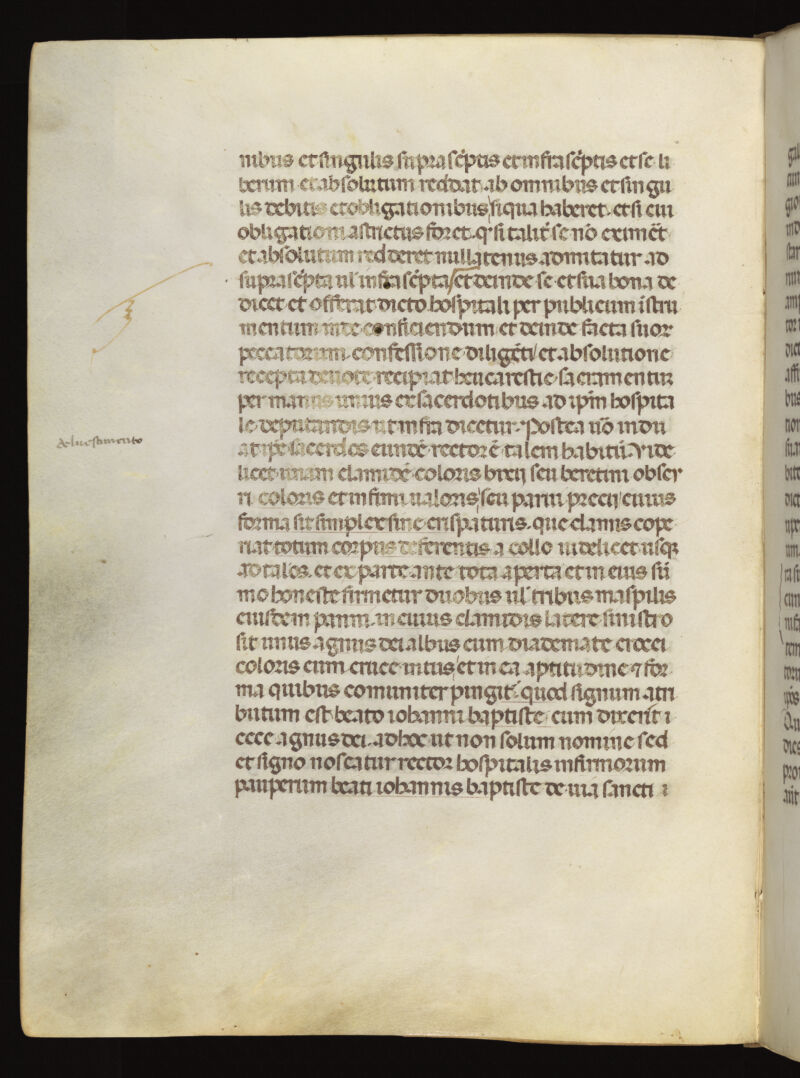 nibus et singulis supra sc̄ptis et infra sc̄ptis et se li
berum et absolutum reddat ab omnibus et singu
lis debitis et obligationibus / si qua haberet. et si cui
obligationi astrictus foret. q si talit̓ se nō eximēt
et absolutum redderet nullatenus admitatur ad
supra sc̄pta ul̓ infra sc̄pta / et deinde se et sua bona de
dicet et offerat dicto hospitali per publicum īstru
mentum inde conficiendum et deinde facta suor
peccatorum confessione diligēti / et absolutione
recepta deuote recipiat heucarestie sacramentum
per manus unius ex sacerdotibus ad ip̄m hospita
le deputandis ut infra dicetur. Postea uō indu
at ip̄e sacerdos eundē rectorē talem habitū. Vide
licet unam clamidē coloris breti seu beretini obscr
ri coloris et infimi ualoris / seu parui precij / cuius
forma sit simplex sine crispaturis. que clamis cope
riat totum corpus deferentis a collo uidelicet usq̨
ad talos. et ex parte ante tota aperta et in eius sū
mo honeste firmetur duobus ul̓ tribus maspilis
eiusdem panni. in cuius clamidis latere sinistro
sit unus agnus dei albus cum diademate crocei
coloris cum cruce intus / et in ea aptitudine ⁊ for
ma quibus comuniter pingit̓. quod signum atri
butum est beato iohanni baptiste cum dixerit ı
ecce agnus dei. ad hoc ut non solum nomine sed
et signo noscatur rector hospitalis infirmorum
pauperum beati iohannis baptiste de uia sancti ı
De huestimento